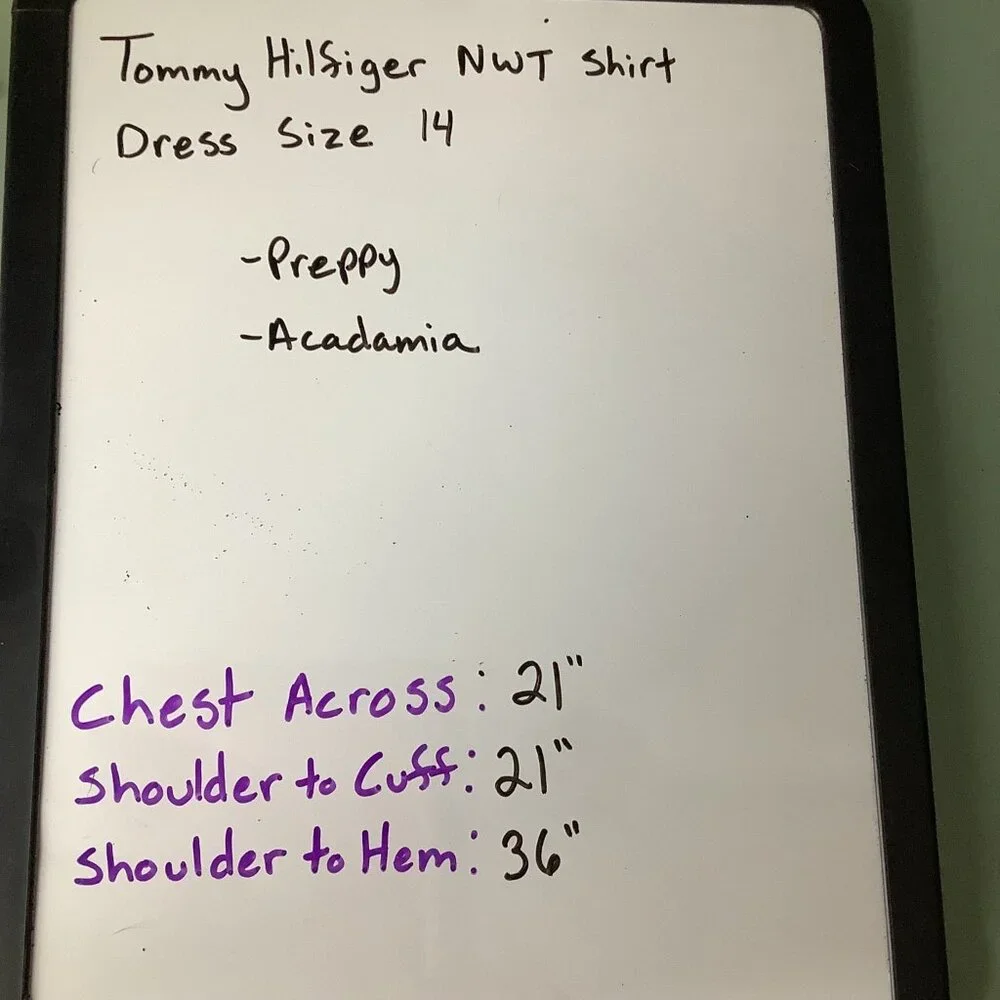 Tommy Hilfiger NWT Shirt
Dress Size 14
-Preppy
-Acadamia
Chest Across: 21"
Shoulder to Cuff: 21"
Shoulder to Hem: 36"